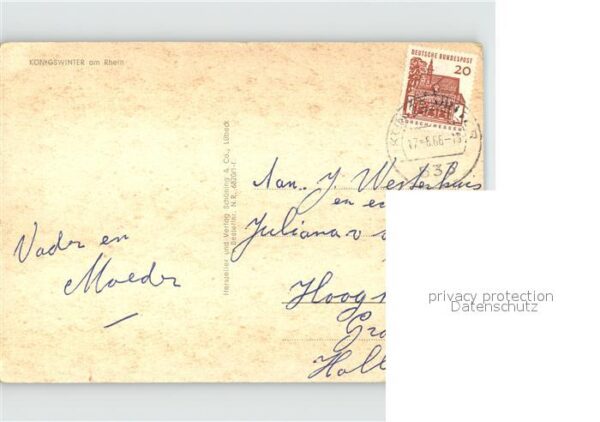 KÖNIGSWINTER am Rhein
DEUTSCHE BUNDESPOST
20
LORSCH/HESSEN
17.-8.66-18
533
Hersteller und Verlag Schöning & Co., Lübeck
Bestellnr. N.R.
Vader en
Moeder
Aan. J. Westerhuis
en
Juliana v
Hoog
Gro
Holl
privacy protection
Datenschutz